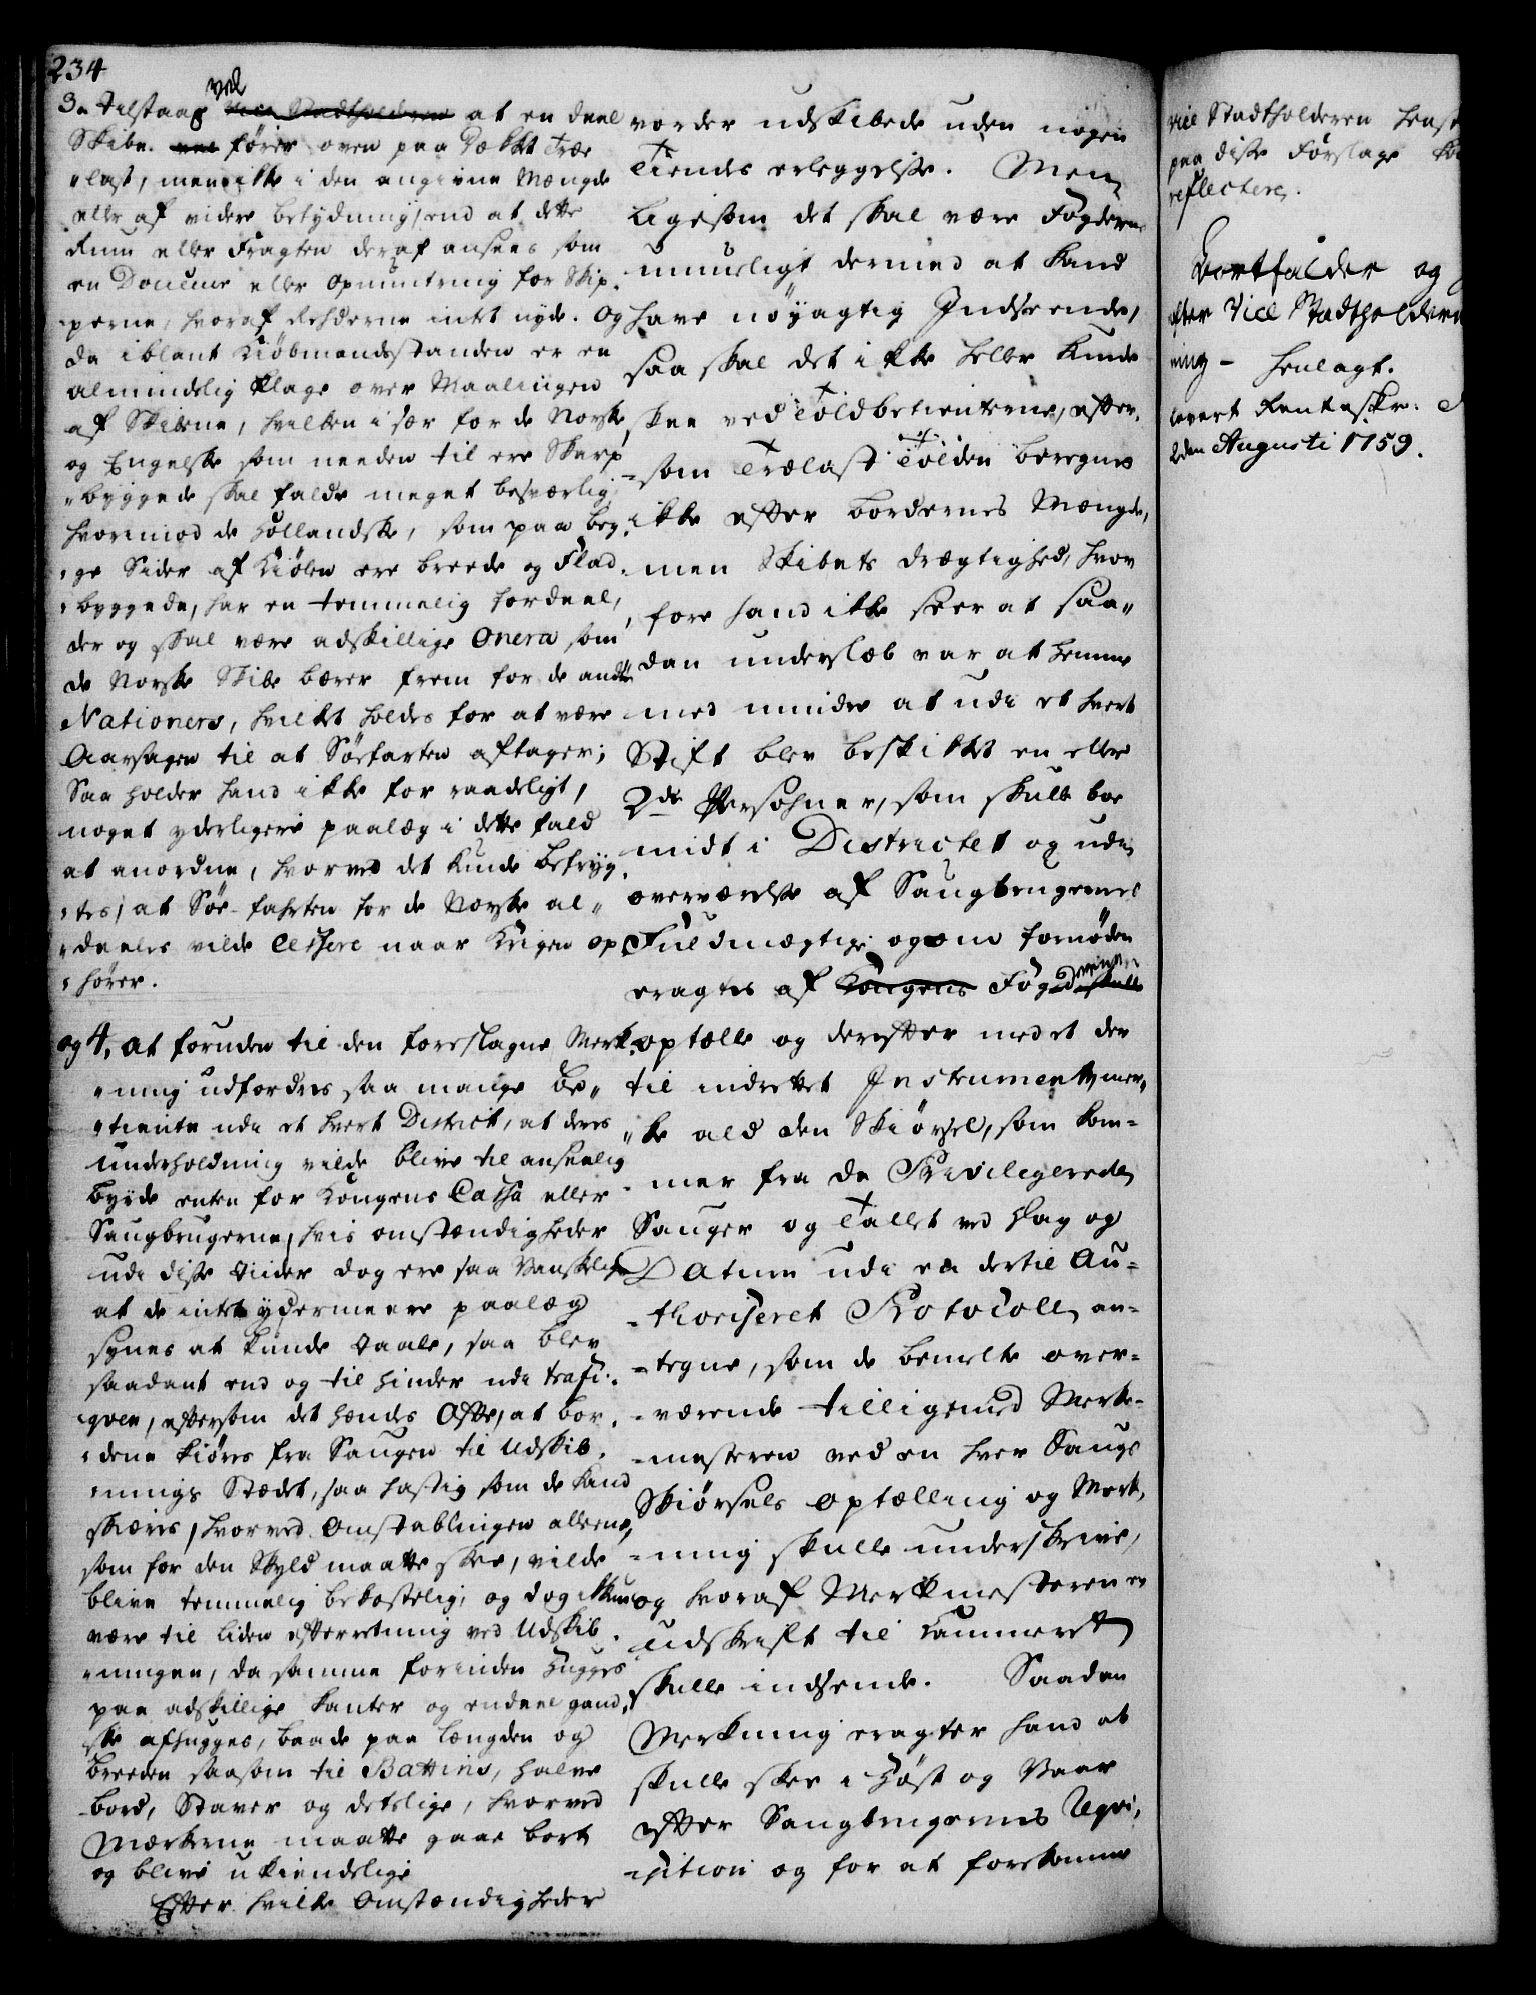 234
3. tilstaas vel ~~Vice Stadtholderen~~ at en deel
Skibe. fører oven paa Dækket Træ
"last, men ikke i den angivne Mængde
eller af videre betydning, end at dette
Rum eller Fragten deraf ansees som
en Douceur eller Opmuntring for Skip,
perne, hvoraf Rehderne intet nyde. Og
da iblant Kiöbmandsstanden er en
almindelig klage over Maalingen
af Skibene, hvilken i sær for de Norske
og Engelske som neden til ere Skarp
"byggede skal falde meget besværlig
hvorimod de Hollandske, som paa beg,
"ge Sider af Kiölen ere breede og Flad,
"byggede, har en temmelig fordeel,
der og skal være adskillige Onera som
de Norske Skibe bærer frem for de andre
Nationers, hvilket holdes for at være
Aarsagen til at Söefarten aftager;
Saa holder hand ikke for raadeligt,
noget yderligere paalæg i dette fald
at anordne, hvorved det kunde befryg,
"tes, at Söe-farten for de Norske al"
"deeles vilde cessere naar Krigen op
"hører.
og 4, at foruden til den foreslagne Merk,
"ning udfordres saa mange be"
"tiente udi et hvert District, at deres
underholdning vilde blive til anseelig
byrde enten for Kongens Cassa eller
Saugbrugerne, hvis omstændigheder
udi disse Tiider dog ere saa Vanskelige
at de intet ydermeere paalæg
synes at kunde taale, saa blev
saadant end og til hinder udi trafi,
qven, eftersom det hendes Ofte, at bor,
"dene kiöres fra Saugen til Udskib,
"nings Stædet, saa hastig som de kand
skiæres, hvorved Omstablingen alleene,
som for den Skyld maatte skee, vilde
blive temmelig bekostelig, og dog ikkun
være til liden efterretning ved Udskib,
"ningen, da samme forinden hugges
paa adskillige kanter og endeel gand,
ske afhugges, baade paa længden og
breeden saasom til Battins, halve
bord, Staver og deslige, hvorved
Mærkerne maatte gaae bort
og blive ukiendelige
Efter hvilke Omstændigheder
vorder udskibede uden nogen
Tiendes erleggelse. Men
ligesom det skal være Fogderne
umueligt dermed at kand
have nöyagtig Indseende,
saa skal det ikke heller kunde
skee ved Toldbetienterne, efter,
"som Trælast Tolden beregnes
ikke efter bordernes Mængde,
men Skibets drægtighed, hvor
fore hand ikke seer at saa"
dan underslæb var at hemme
med mindre at udi et hvert
Stift blev beskikket en eller
2de Persohner, som skulle boe
midt i Districtet og udi
overværelse af Saugbrugernes
Fuldmægtige og om fornøden
eragtes af ~~Kongens~~ Fogden
optelle og derefter med et der
til indrettet Instrument, mer,
"ke ald den Skiørsel, som kom-
"mer fra de Privilegerede
Sauger og Tallet ved Dag og
Datum udi en dertil Au=
=thoriseret Protocoll an=
=tegne, som de bemelte over=
=værende tilligemed Merke=
=mesteren ved en hver Saugs
Skiørsels optælling og Merk,
=ning skulle underskrive,
og hvoraf Merkmesteren en
udskrift til Cammeret
skulle indsende. Saadan
Merkning eragter hand at
skulle skee i Høst og Vaar
efter Saugbrugernes Reqvi,
=sition og for at forekomme
vice Stadtholderen
paa disse Forslage
reflectere.
Bortfalder og
efter Vice Stadtholderen
ning - henlagt.
levert Renteskr:
den Augusti 1759.